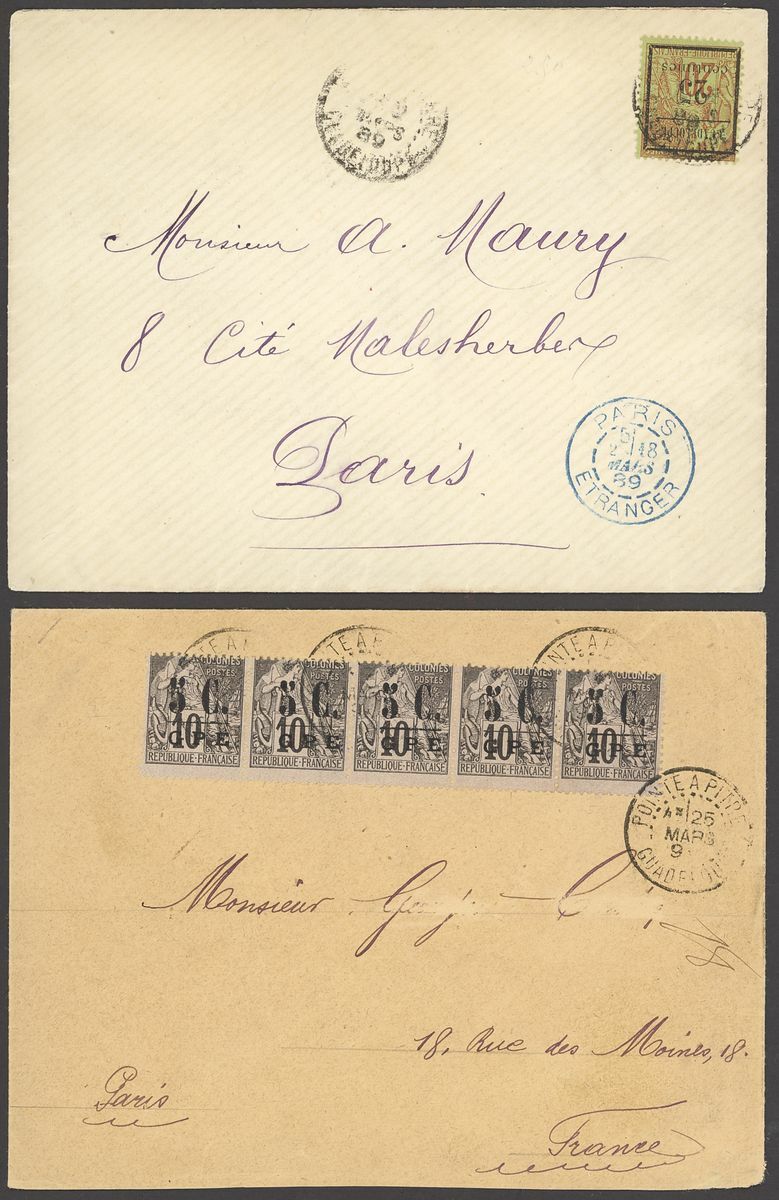 GUADELOUPE
MARS
89
25
centimes
20
Monsieur A. Maury
8 Cité Malesherbes
Paris.
PARIS
2 18
MARS
89
ETRANGER
POINTE A P
POINTE A P
COLONIES COLONIES COLONIES COLONIES COLONIES
POSTES POSTES POSTES POSTES POSTES
5 C. 5 C. 5 C. 5 C. 5 C.
10 10 10 10 10
G.P.E. G.P.E. G.P.E. G.P.E. G.P.E.
REPUBLIQUE-FRANÇAISE REPUBLIQUE-FRANÇAISE REPUBLIQUE-FRANÇAISE REPUBLIQUE-FRANÇAISE REPUBLIQUE-FRANÇAISE
POINTE A PITRE
25
MARS
9
GUADELOUPE
Monsieur
18, Rue des Moines, 18.
Paris
France